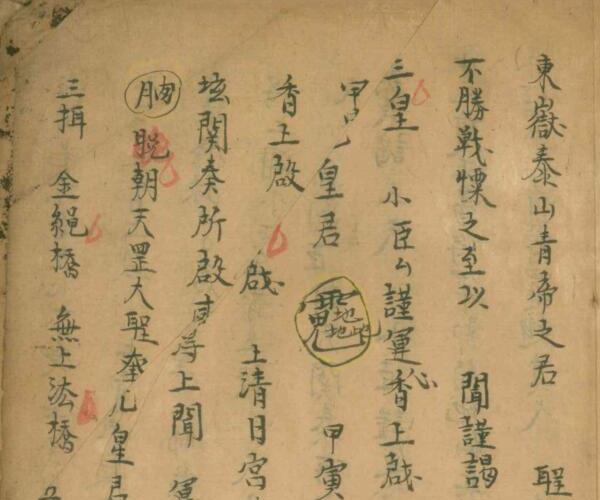 東嶽泰山青帝之君 聖
不勝戰慄之至以 聞謹謁
三皇 小臣厶謹運香上啟
甲 皇君 甲寅
香上啟 啟 上清日宮
垓閞奏所啟 得上聞
晚朝天罡大聖 皇君
三揖 金繩橋 無上法橋